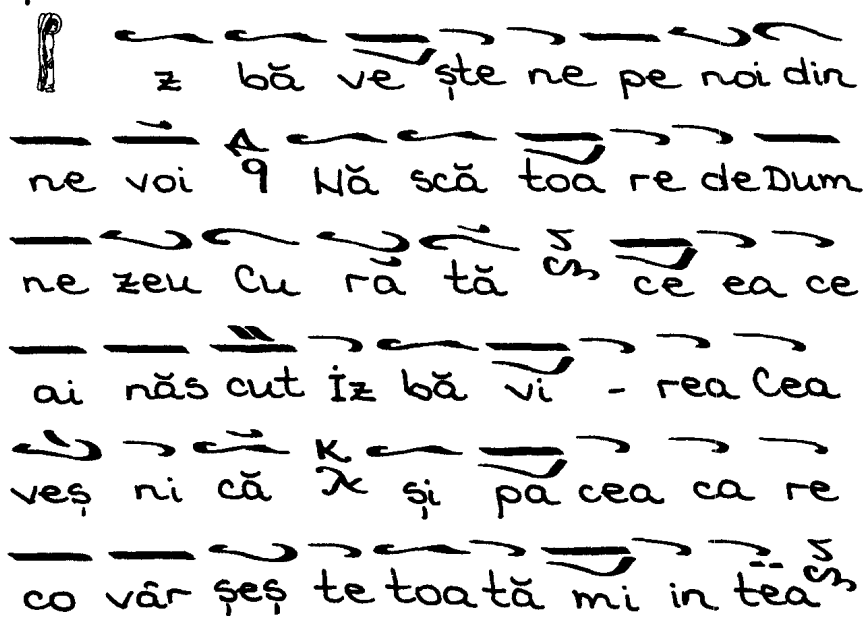 I z bă ve ște ne pe noi din
ne voi Nă scă toa re de Dum
ne zeu Cu ra tă ce ea ce
ai năs cut iz bă vi - rea Cea
veș ni că și pa cea ca re
co vâr șeș te toa tă mi in tea